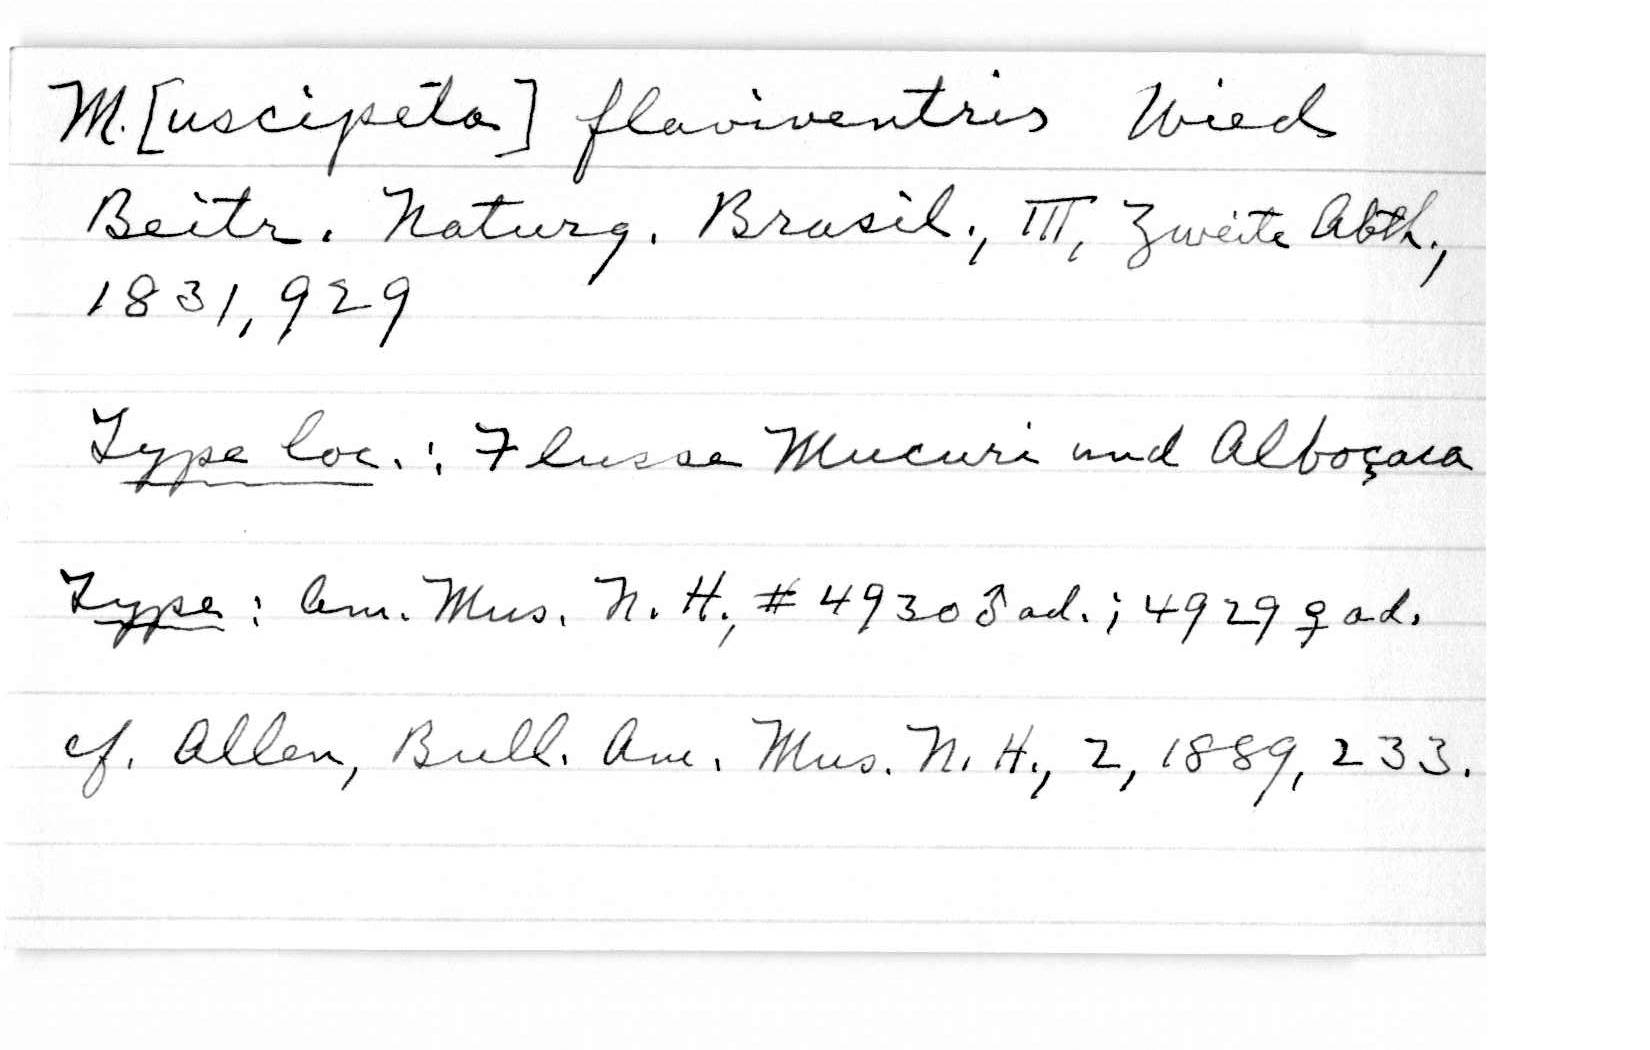 M.[uscipeta] flaviventris Wied
Beitr. Naturg. Brasil., III, Zweite Abth.,
1831, 929
Type loc.: Flusse Mucuri und Alboçaca
Type: Am. Mus. N. H., # 4930 ♂ ad.; 4929 ♀ ad.
cf. Allen, Bull. Am. Mus. N. H., 2, 1889, 233.